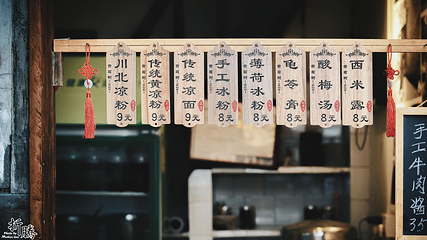 川北凉粉
9元
传统黄凉粉
9元
传统凉面
9元
手工冰粉
8元
薄荷冰粉
8元
龟苓膏
8元
酸梅汤
8元
西米露
8元
手工牛肉酱
35